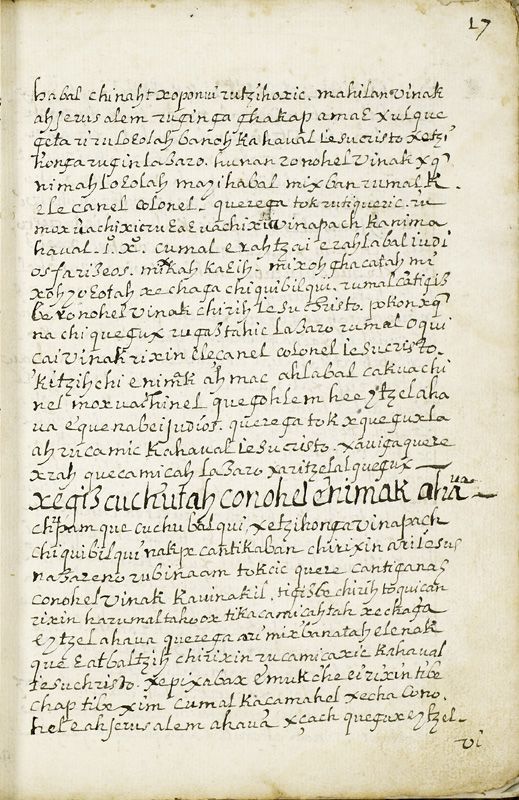 17
habal chinaht xoponui rutzihoxic. mahilan vinak
ahJerusalem ruginga ghakap amaE xulque
geta riruloEolah banoh kahaval iesucristo xetzi
honga rugin laBaro. hunan ronohel vinak xq
nimah loEolah mayihabal mixban rumal. K.
ele canel colonel. querega tok rutiqueric. ru
mox uachixic ruEaEuachixic vinapach kanima
haual. I. X. cumal e rahtzai e rahlabal iudi
os fariseos. mitkah kaEih. mixoh ghacatah mi
xoh yoEotah xechaga chiquibilqui. rumal catigiB
be ronohel vinak chirih Jesu christo. pokon xq
na chi quegux rugaStahic laBaro rumal oqui
cai vinak rixin elecanel colonel iesucristo.
kitzih chi e nimak ah mac ahlabal cakuachi
nel moxuachinel quegohlem hee ytzel aha
ua e que nabei judios. querega tok xquegux la
ah rucamic kahaual iesucristo. xauiga quere
xrah quecamicah laBaro xaritzelal quegux
xegiB cuchutah conohel enimak ahauà
chupam que cuchubal qui, xetzihonga vinapach
chiquibilqui nakpe cantikaban chirixin ari iesus
naBareno rubinaam tokcic quere cantiganas
conohel vinak kauinakil. tigiSbe chirih toquican
rixin harumal tahoox tikacamicahtah xechaga
eytzel ahaua querega ari mixbanatah elenak
que Eatbaltzih chirixin rucamicaxic kahaual
iesuchristo. xepixabax emukche eirixin tibe
chap tibe xim cumal kacamahel xecha cono.
hel e ahJerusalem ahauà xçach quegux eytzel-
vi